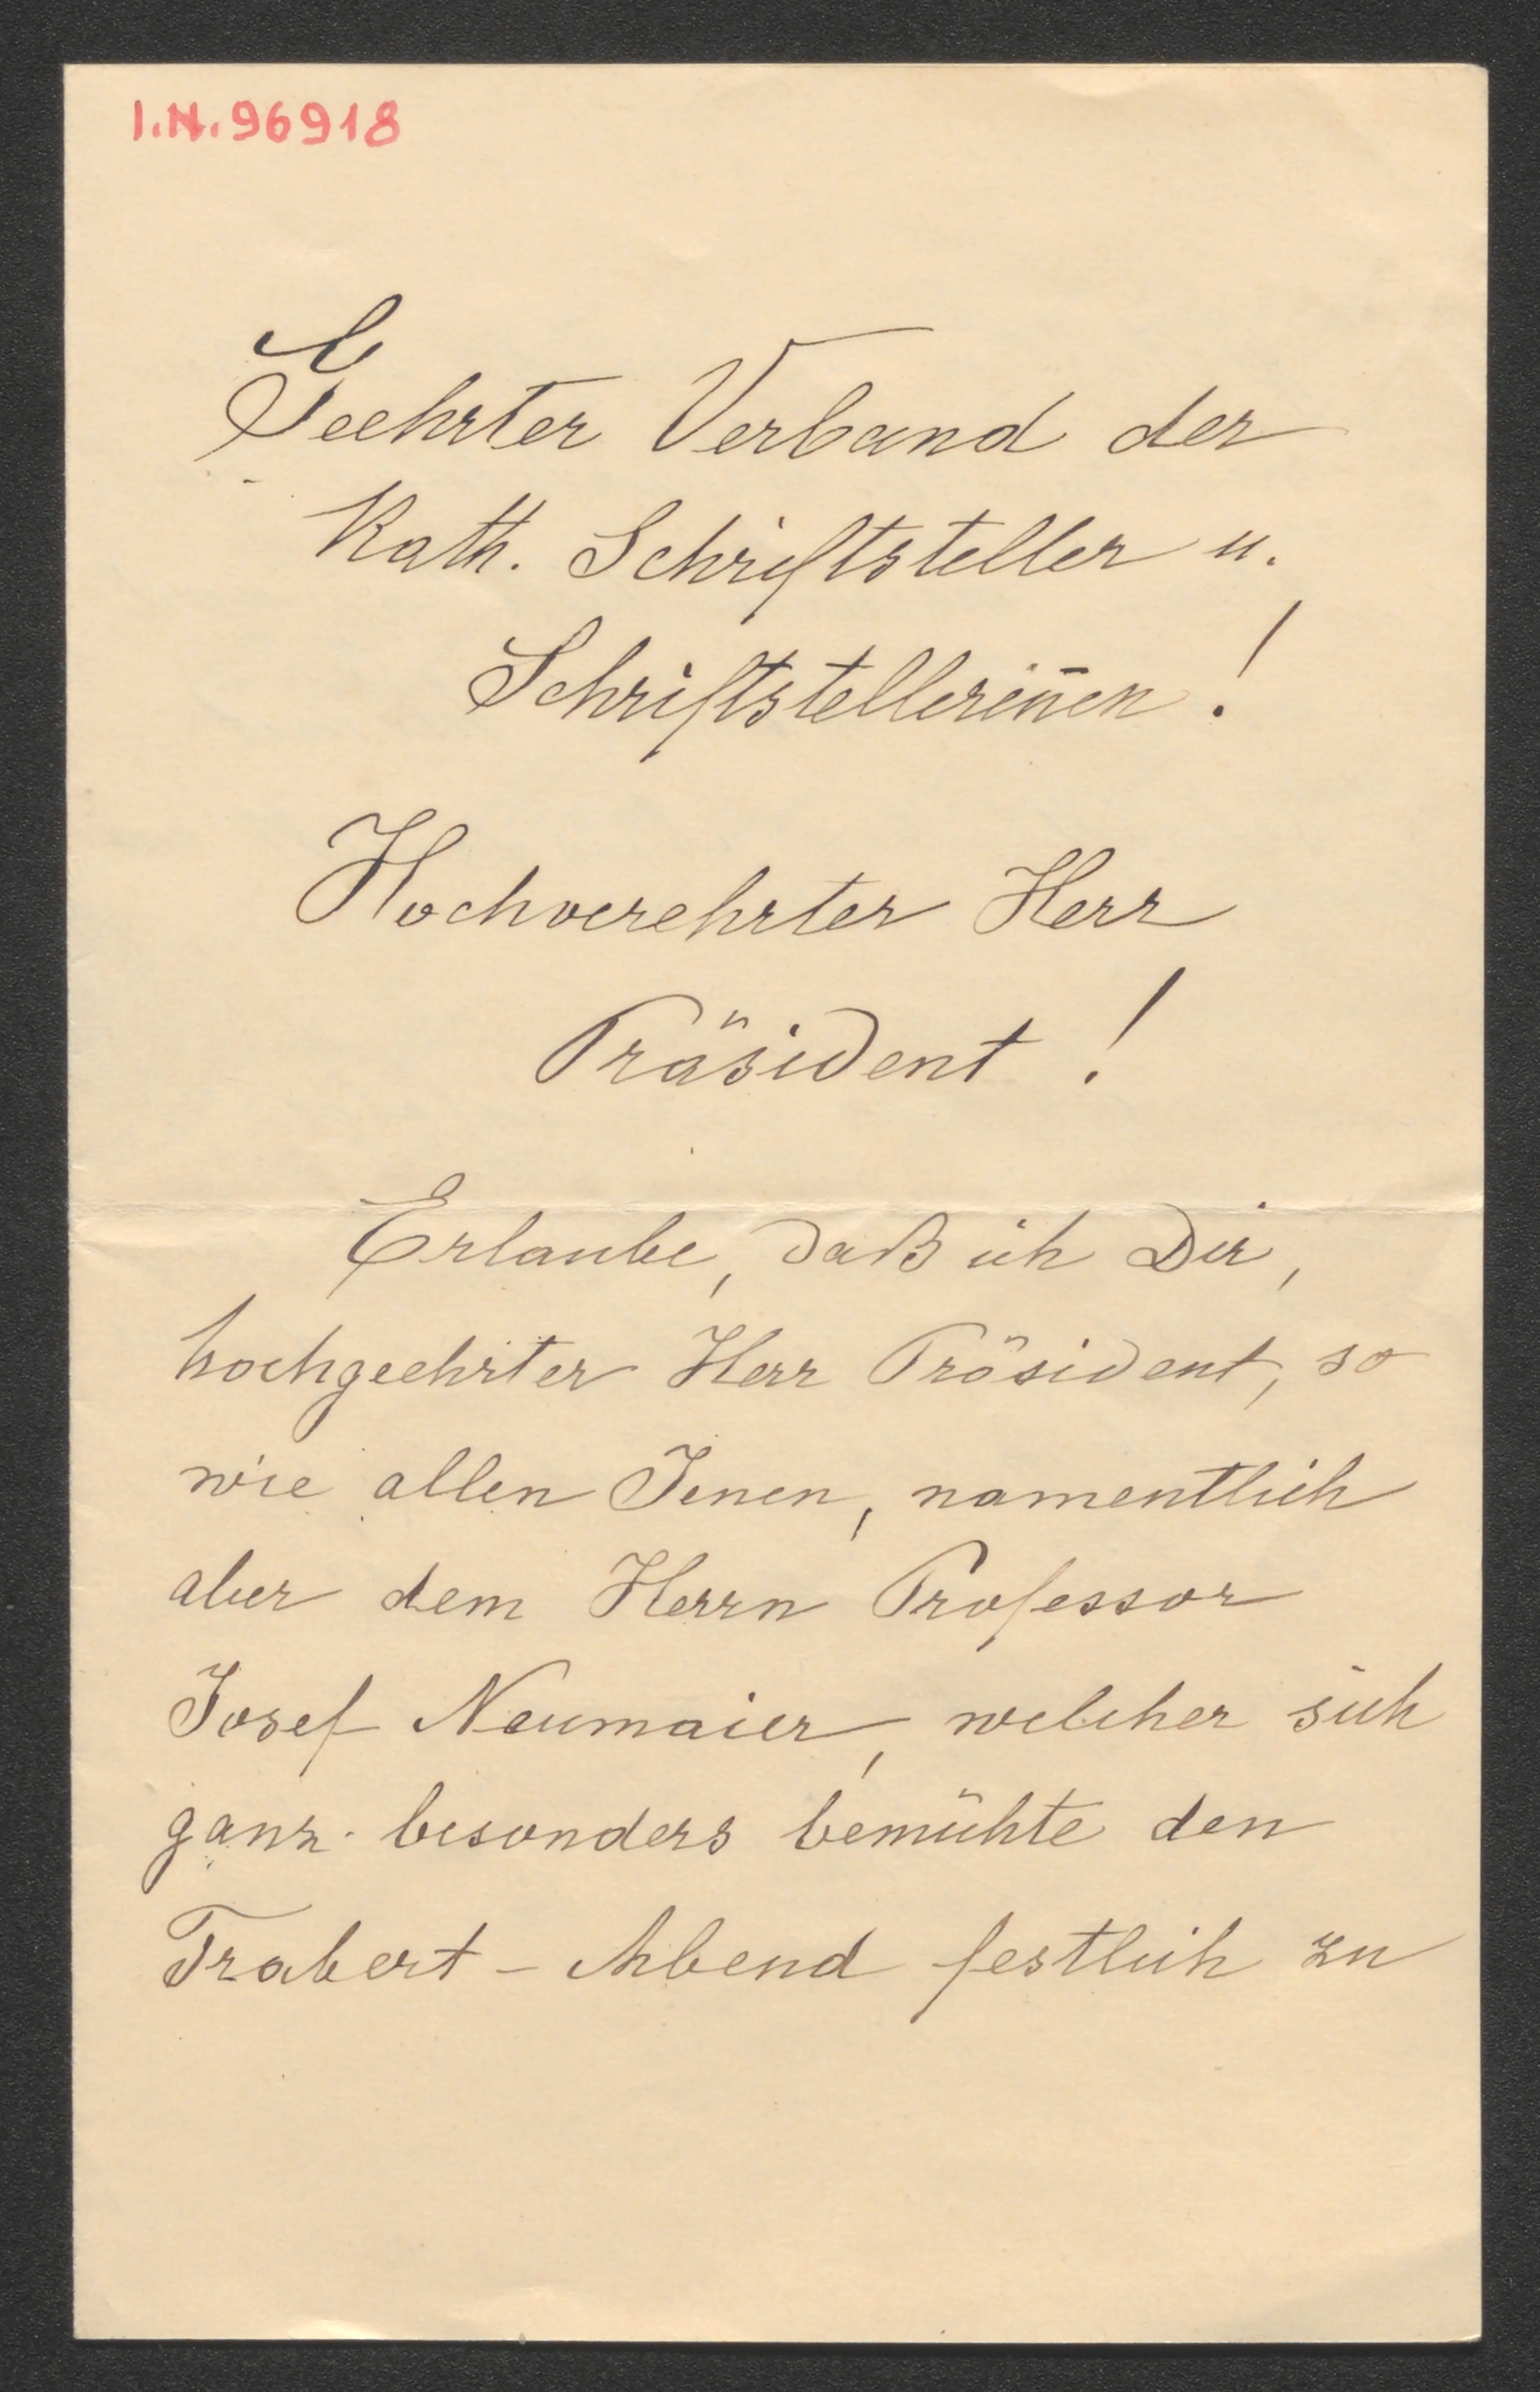 I.N. 96918
Geehrter Verband der
Kath. Schriftsteller u.
Schriftstellerin̄en!
Hochverehrter Herr
Präsident!
Erlaube, daß ich Dir,
hochgeehrter Herr Präsident, so
wie allen Jenen, namentlich
aber dem Herrn Professor
Josef Neumaier, welcher sich
ganz besonders bemühte den
Trabert-Abend festlich zu